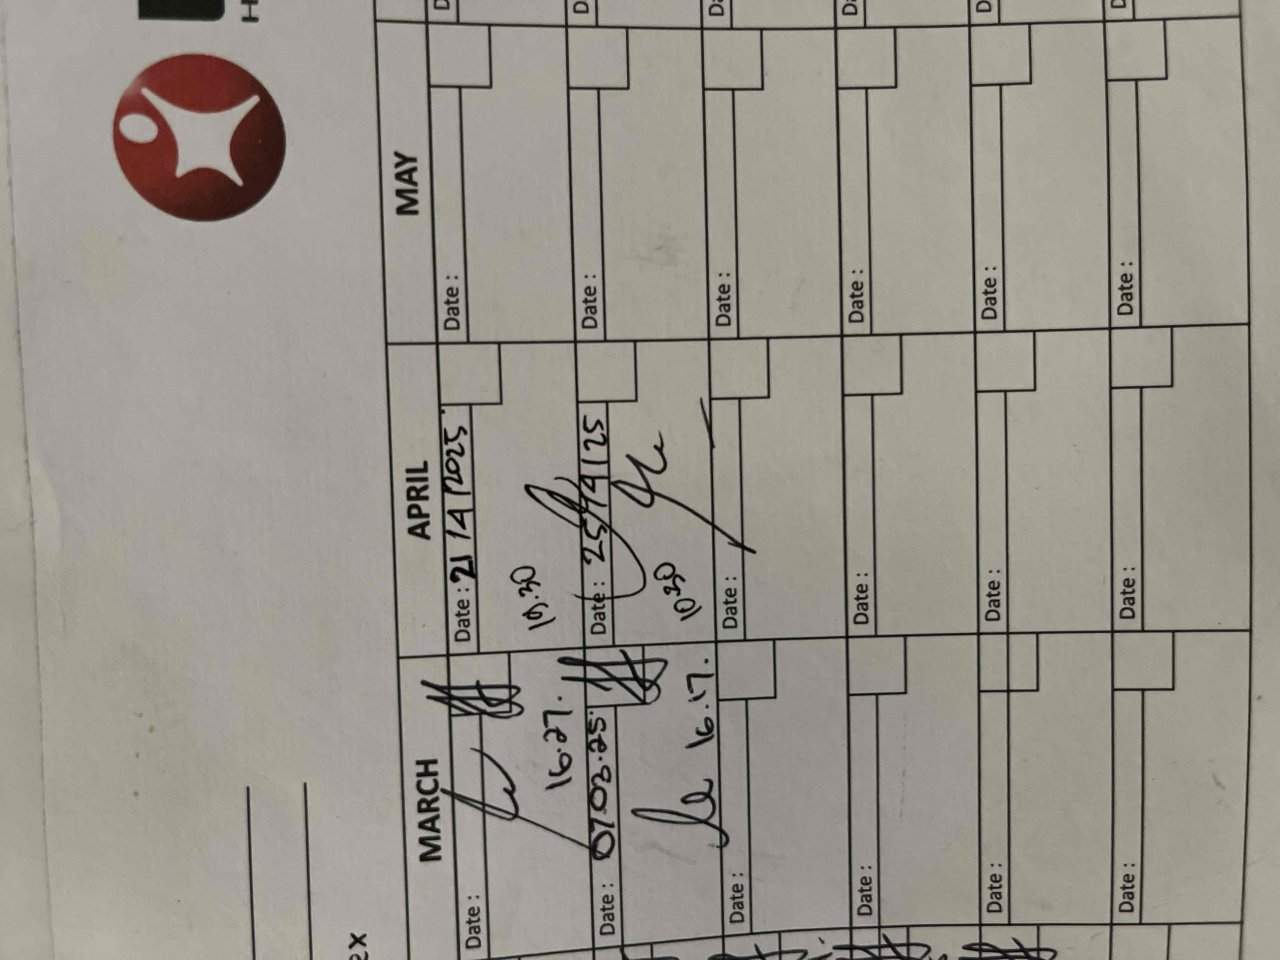 ex
MARCH APRIL MAY
Date : Date : 21/4/2025 Date :
16.27. 10.30
Date : 07.03.25. Date : 25/4/25 Date :
16.17. 10 30
Date : Date : Date :
Date : Date : Date :
Date : Date : Date :
Date : Date : Date :